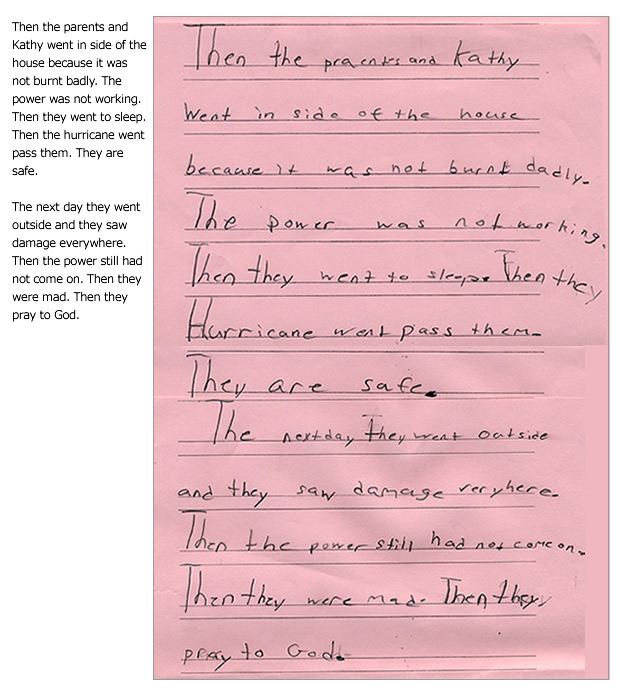 Then the parents and
Kathy went in side of the
house because it was
not burnt badly. The
power was not working.
Then they went to sleep.
Then the hurricane went
pass them. They are
safe.
The next day they went
outside and they saw
damage everywhere.
Then the power still had
not come on. Then they
were mad. Then they
pray to God.
Then the praentes and Kathy
Went in side of the house
because it was not burnt dadly.
The power was not working.
Then they went to sleep. Then they
Hurricane went pass them.
They are safe.
The nextday They went outside
and they saw damage veryhere.
Then the power still had not come on.
Then they were mad. Then they
pray to God.